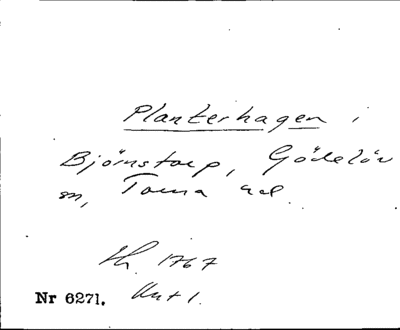 Planterhagen i
Björnstorp, Gödelöv
sn, Torna hd.
1767
Nr 6271.